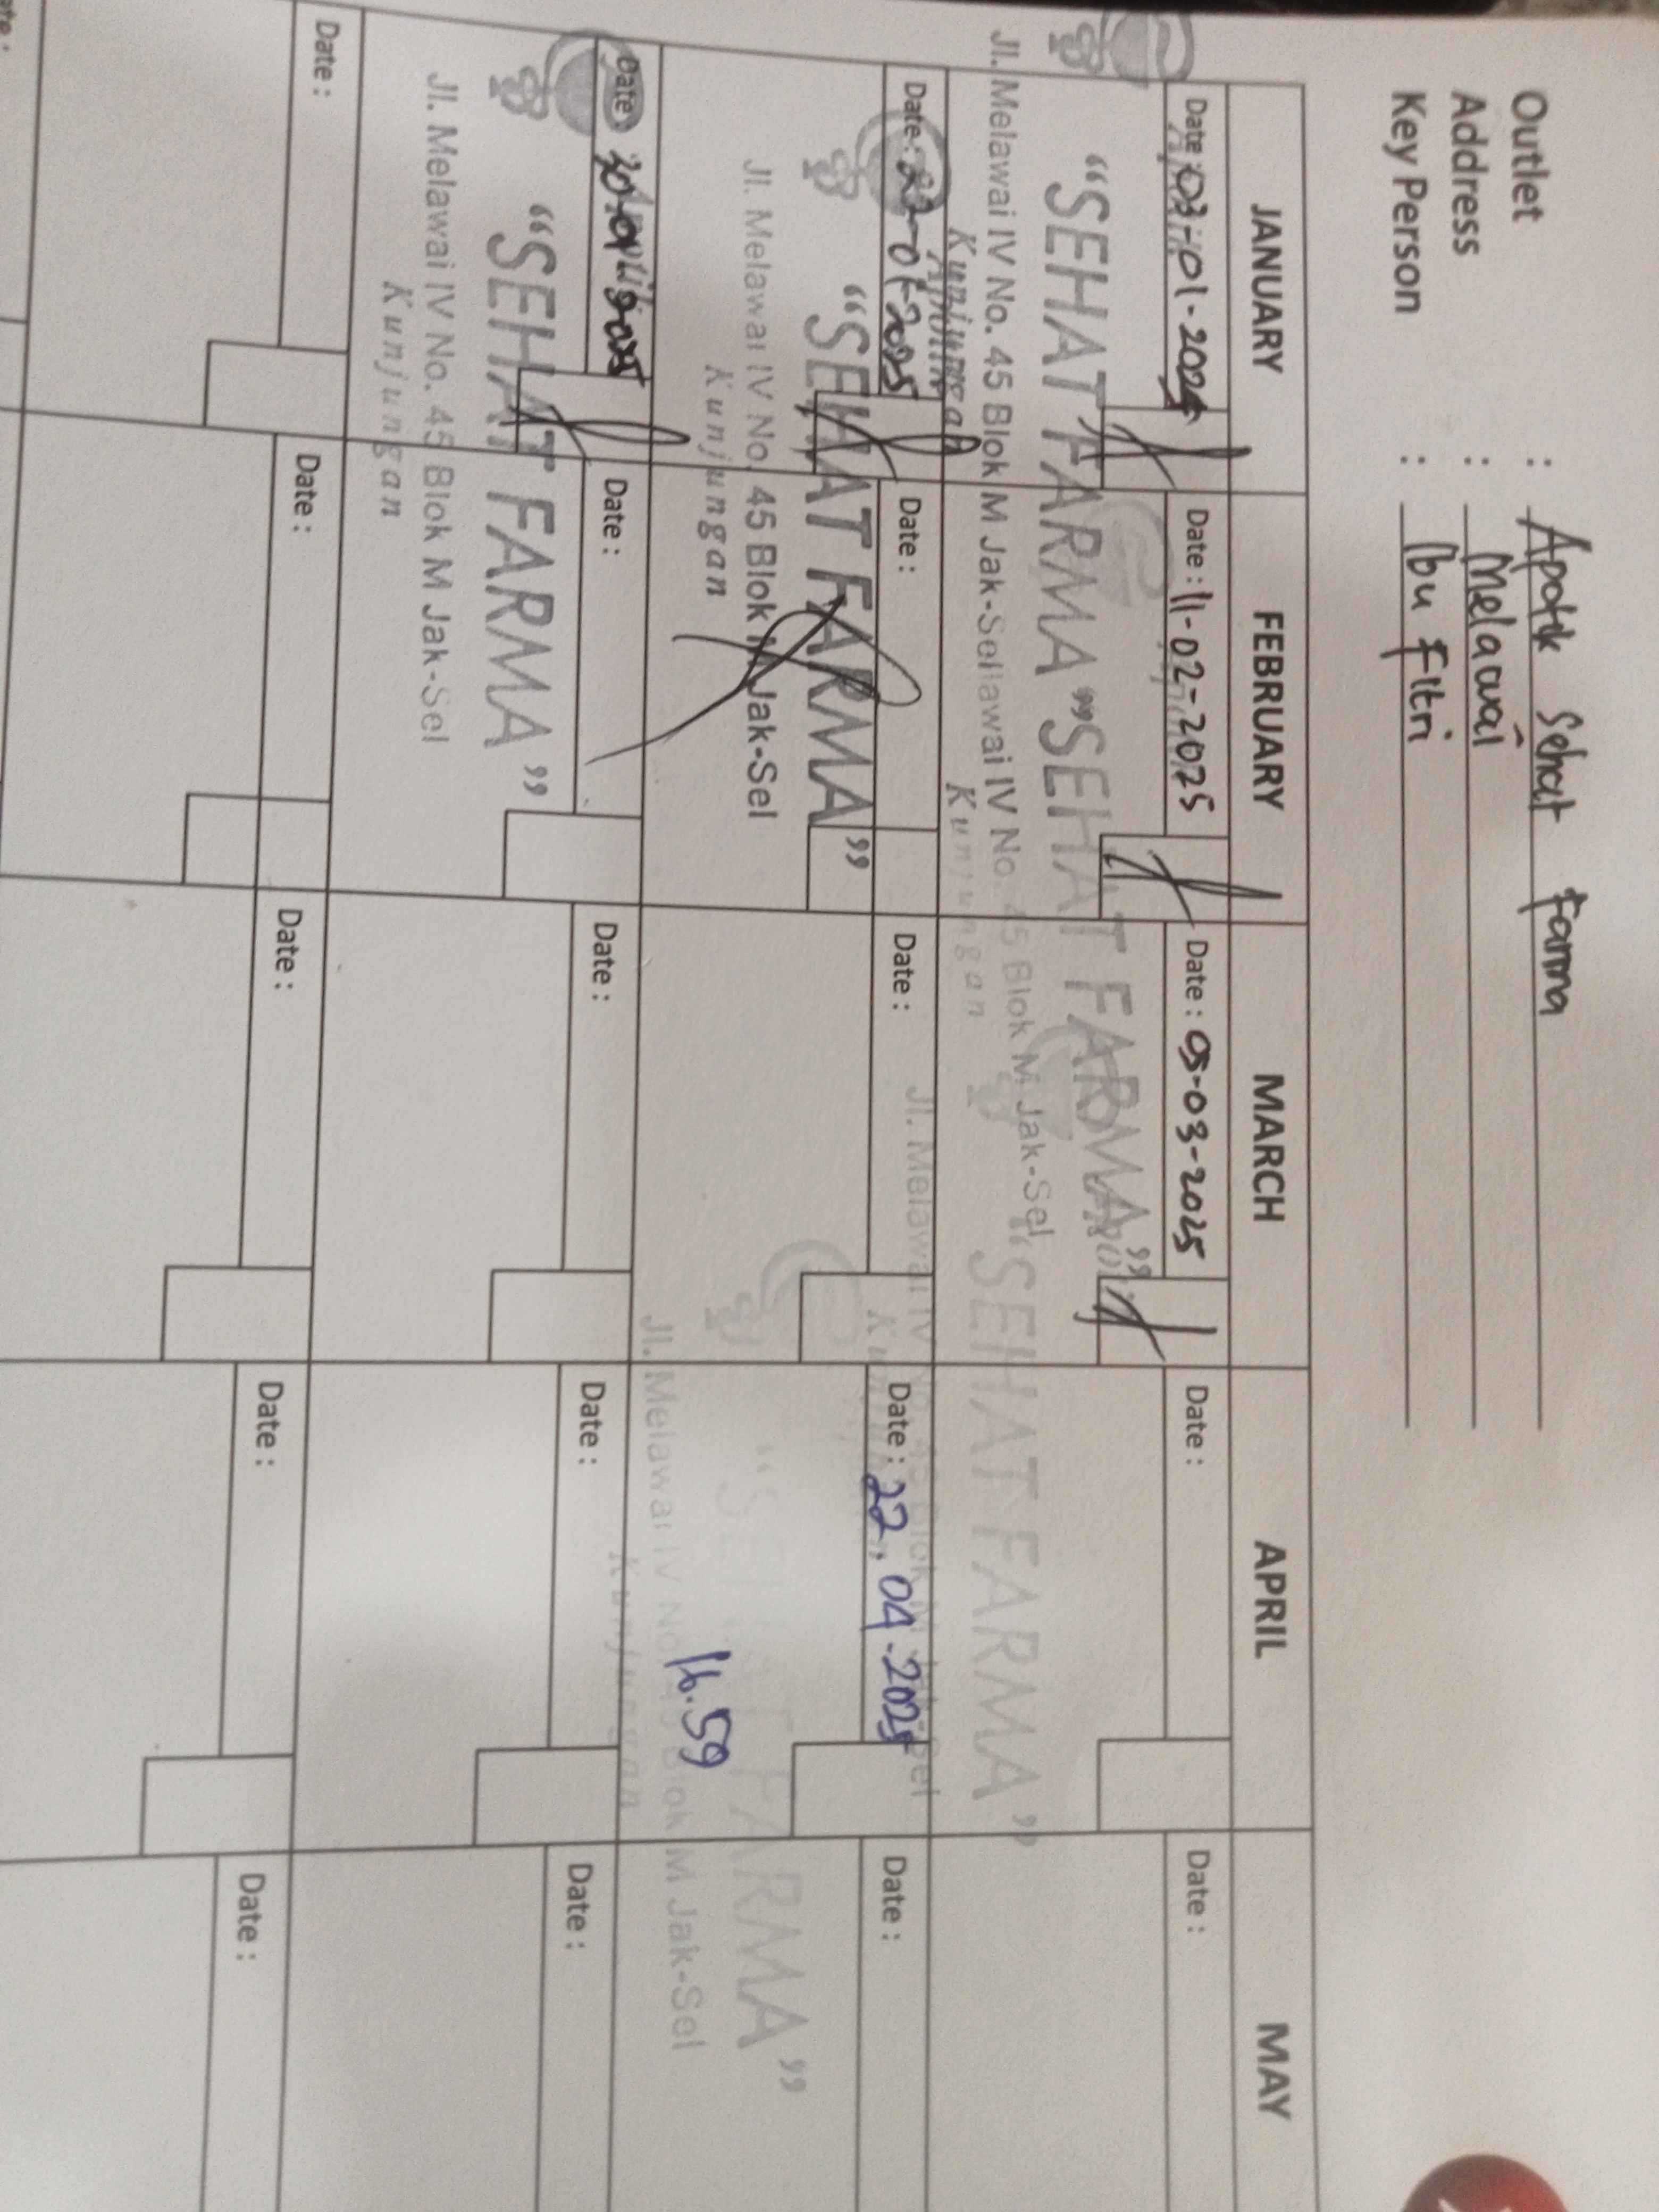 Outlet : Apotik Sehat Farma
Address : Melawai
Key Person : Ibu Fitri
JANUARY FEBRUARY MARCH APRIL MAY
Date : 03-01-2025 Date : 11-02-2025 Date : 05-03-2025 Date : Date :
"SEHAT FARMA" "SEHAT FARMA"
"SEHAT FARMA"
Jl. Melawai IV No. 45 Blok M Jak-Sel lawai IV No. 45 Blok M Jak-Sel
Kunjungan Kunjungan
Date : 22-01-2025 Date : Date : Date : 22.04.2025 Date :
Jl. Melawai IV
"SEHAT FARMA"
"SEHAT FARMA"
Jl. Melawai IV No. 45 Blok M Jak-Sel
Kunjungan
16.59
Jl. Melawai IV No. Blok M Jak-Sel
Kunjungan
Date Date : Date : Date : Date :
"SEHAT FARMA"
Jl. Melawai IV No. 45 Blok M Jak-Sel
Kunjungan
Date : Date : Date : Date : Date :